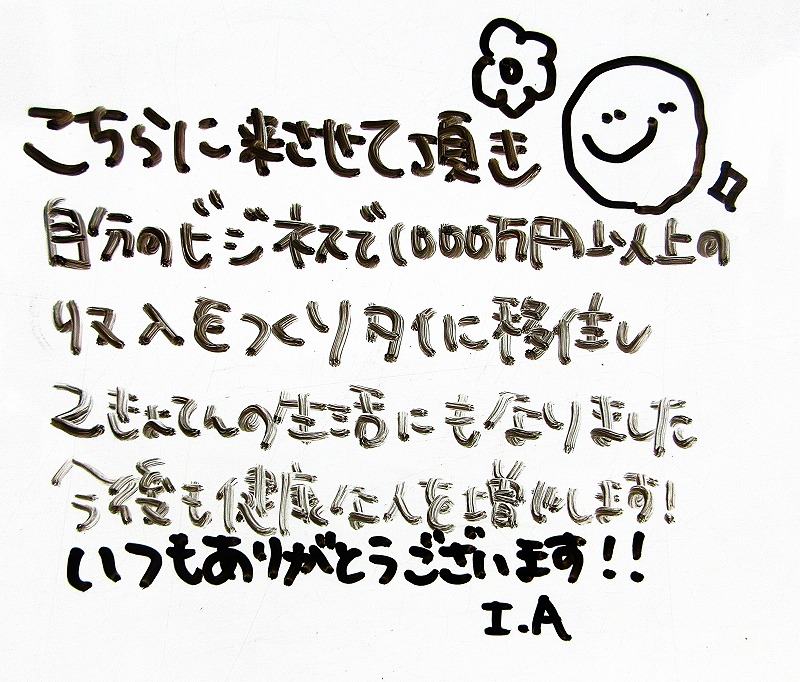 こちらに来させて頂き
自分のビジネスで1000万円以上の
収入をつくりタイに移住し
2きょてんの生活にもなりました
今後も健康な人を増やします!
いつもありがとうございます!!
I.A